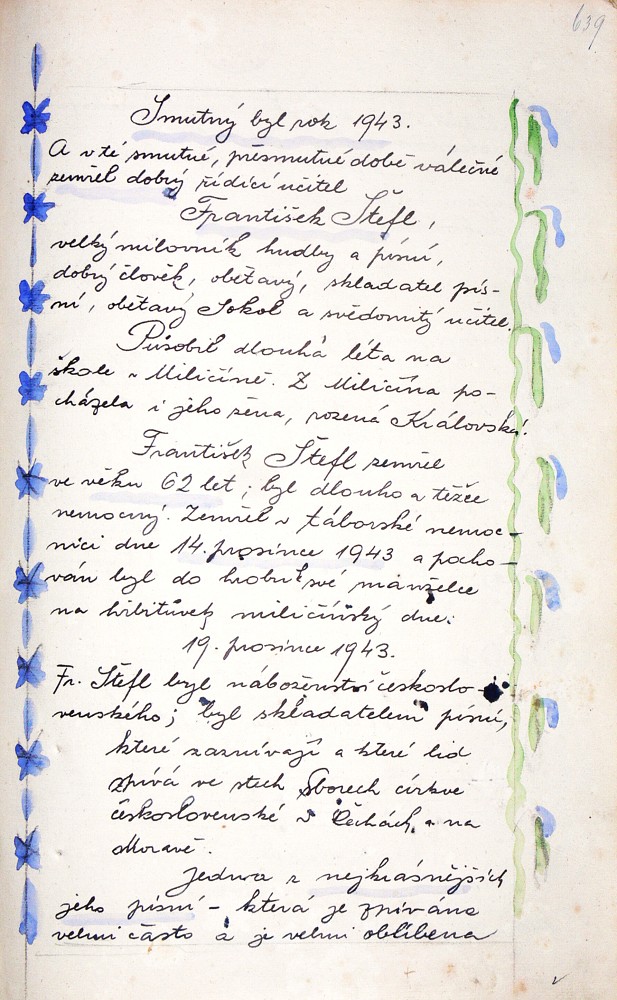 639
Smutný byl rok 1943.
A v té smutné, přesmutné době válečné
zemřel dobrý řídící učitel
František Štefl,
velký milovník hudby a písní,
dobrý člověk, obětavý, skladatel pís-
ní, obětavý Sokol a svědomitý učitel.
Působil dlouhá léta na
škole v Miličíně. Z Miličína po-
cházela i jeho žena, rozená Královská.
František Štefl zemřel
ve věku 62 let; byl dlouho a těžce
nemocný. Zemřel v táborské nemoc-
nici dne 14. prosince 1943 a pocho-
ván byl do hrobu k své manželce
na hřbitůvek miličínský dne:
19. prosince 1943.
Fr. Štefl byl náboženství českoslo-
venského; byl skladatelem písní,
které zaznívají a které lid
zpívá ve stech sborech církve
československé v Čechách a na
Moravě.
Jedna z nejkrásnějších
jeho písní – která je zpívána
velmi často a je velmi oblíbena